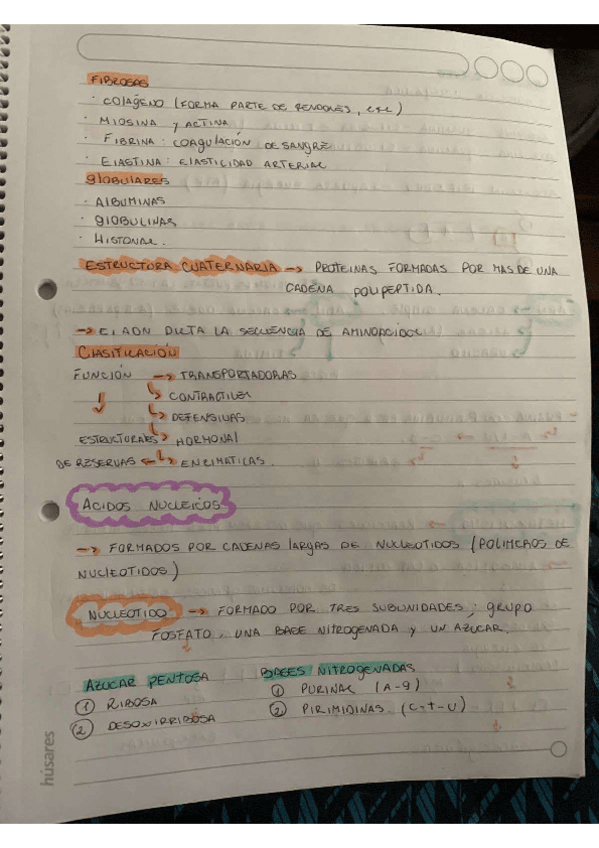 FIBROSAS
· COLAGENO (FORMA PARTE DE TENDONES, etc)
· MIOSINA y ACTINA
· FIBRINA: COAGULACIÓN DE SANGRE
· ELASTINA: ELASTICIDAD ARTERIAL
GLOBULARES
· ALBUMINAS
· GLOBULINAS
· HISTONAS.
ESTRUCTURA CUATERNARIA → PROTEINAS FORMADAS POR MAS DE UNA
CADENA POLIPEPTIDA.
→ El ADN DICTA LA SECUENCIA DE AMINOACIDOS
CLASIFICACIÓN
FUNCIÓN → TRANSPORTADORAS
CONTRACTILES
DEFENSIVAS
ESTRUCTURALES HORMONAL
DE RESERVAS ENZIMATICAS.
ACIDOS NUCLEICOS
→ FORMADOS POR CADENAS LARGAS DE NUCLEOTIDOS (POLIMEROS DE
NUCLEOTIDOS)
NUCLEOTIDO → FORMADO POR TRES SUBUNIDADES; GRUPO
FOSFATO, UNA BASE NITROGENADA y UN AZUCAR.
AZUCAR PENTOSA BASES NITROGENADAS
① RIBOSA ① PURINAS (A-G)
② DESOXIRRIBOSA ② PIRIMIDINAS (C-t-U)
húsares